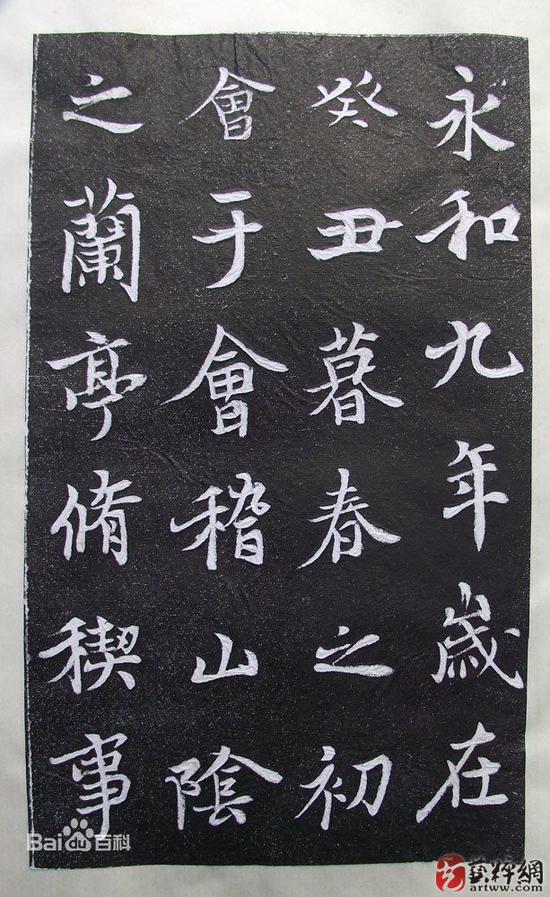 永和九年歲在
癸丑暮春之初
會于會稽山陰
之蘭亭脩稧事
Bai百科
艺粹網
artww.com